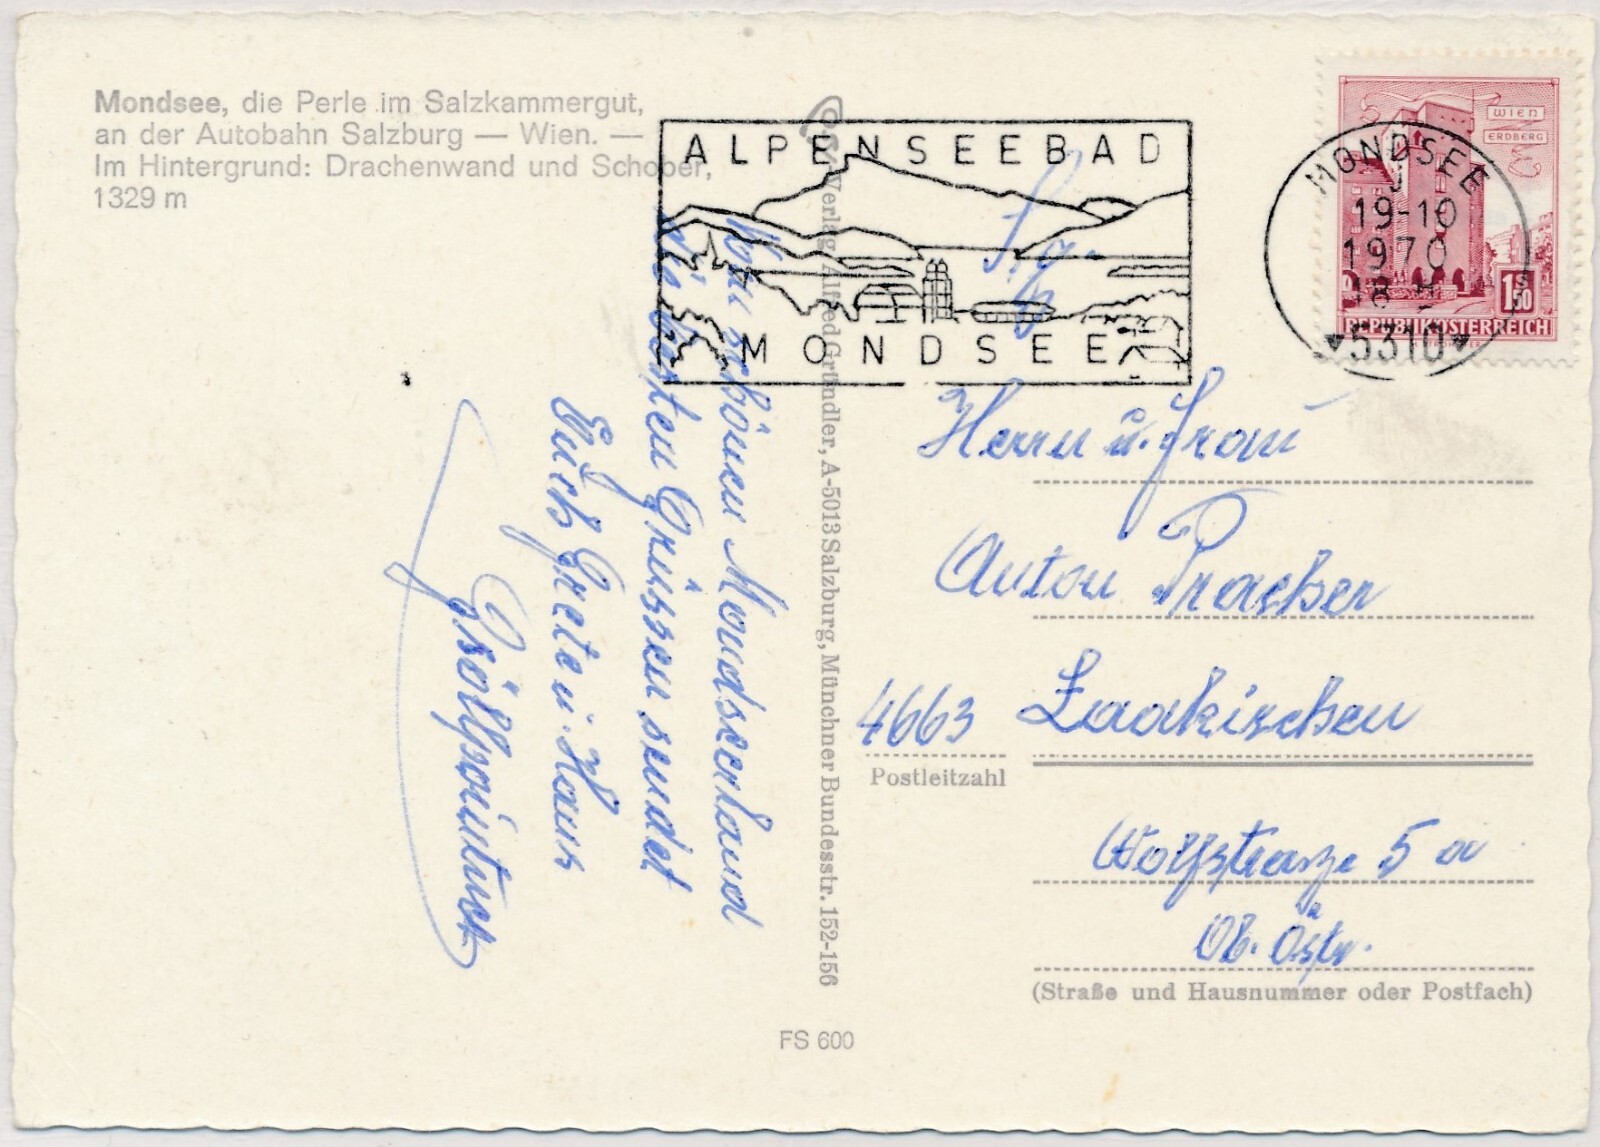 Mondsee, die Perle im Salzkammergut,
an der Autobahn Salzburg — Wien. —
Im Hintergrund: Drachenwand und Schober,
1329 m
ALPENSEEBAD
MONDSEE
MONDSEE
19-10
1970
18
5310
WIEN
ERDBERG
1.50
REPUBLIK ÖSTERREICH
Vom schönen Mondseerland
die besten Grüssen sendet
Euch Grete u. Hans
Verlag Alfred Gründler, A-5013 Salzburg, Münchner Bundesstr. 152-156
Herrn u. Frau
Anton Pracher
4663 Laakirchen
Postleitzahl
Wolfstrasze 5 a
Ob. Östr.
(Straße und Hausnummer oder Postfach)
FS 600